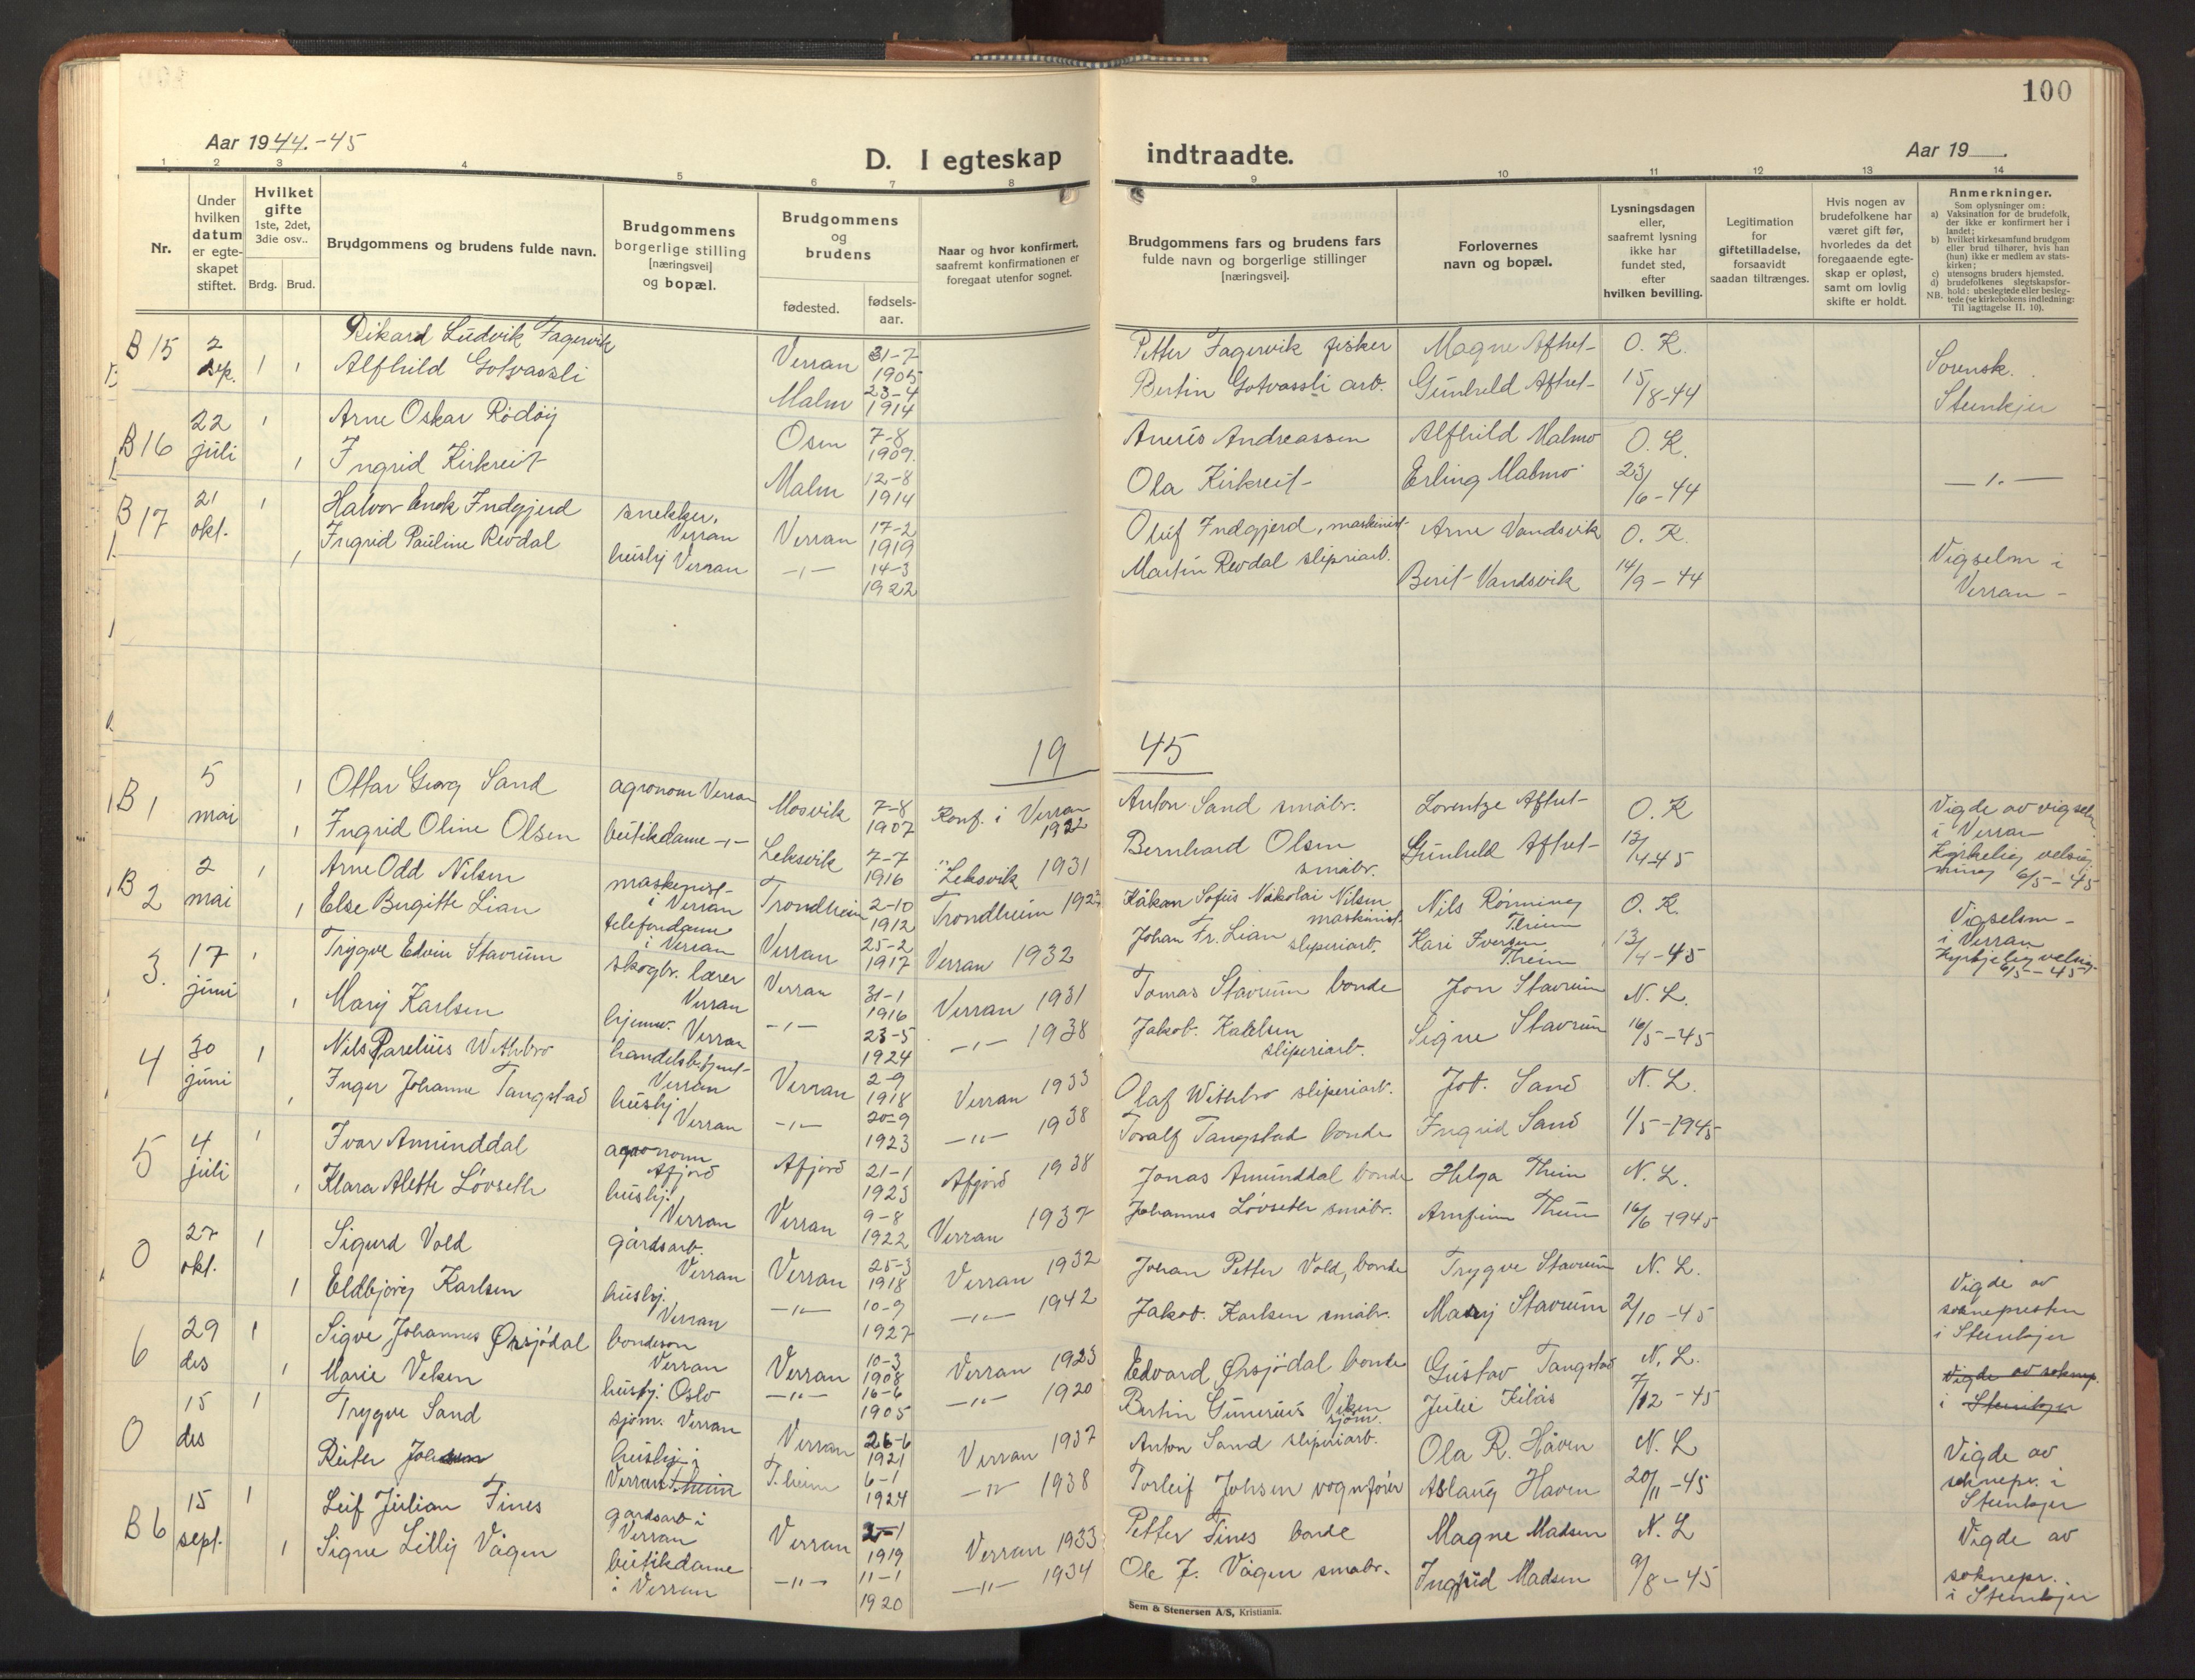 100
Aar 1944.-45
D. I egteskap indtraadte.
Aar 19
1 2 3 4 5 6 7 8 9 10 11 12 13 14
Nr.
Under hvilken datum er egteskapet stiftet.
Hvilket gifte 1ste, 2det, 3die osv..
Brdg. Brud.
Brudgommens og brudens fulde navn.
Brudgommens borgerlige stilling [næringsvei] og bopæl.
Brudgommens og brudens
fødested. fødsels-aar.
Naar og hvor konfirmert, saafremt konfirmationen er foregaat utenfor sognet.
Brudgommens fars og brudens fars fulde navn og borgerlige stillinger [næringsvei].
Forlovernes navn og bopæl.
Lysningsdagen eller, saafremt lysning ikke har fundet sted, efter hvilken bevilling.
Legitimation for giftetilladelse, forsaavidt saadan tiltrænges.
Hvis nogen av brudefolkene har været gift før, hvorledes da det foregaaende egteskap er opløst, samt om lovlig skifte er holdt.
Anmerkninger.
Som oplysninger om:
a) Vaksination for de brudefolk, der ikke er konfirmert her i landet;
b) hvilket kirkesamfund brudgom eller brud tilhører, hvis han (hun) ikke er medlem av statskirken;
c) utensogns bruders hjemsted.
d) brudefolkenes slegtskapsforhold: ubeslegtede eller beslegtede (se kirkebokens indledning: Til iagttagelse II. 10).
NB.
B 15 2 sep. 1 Rikard Ludvik Fagervik Verran 31-7 1905 Petter Fagervik fisker Magne Aftret O. K. Sorensk.
1 Alfhild Gotvassli Malm 23-4 1914 Bertin Gotvassli arb. Gunhild Aftret 15/8-44 Steinkjer
B 16 22 juli 1 Arne Oskar Rødøy Osen 7-8 1909. Andreassen Alfhild Malmo O. K.
1 Ingrid Kirkreit Malm 12-8 1914 Ola Kirkreit Erling Malmo 23/6-44 —"—
B 17 21 okt. 1 Halvor Enok Indgjerd snekker, Verran Verran 17-2 1919 Oluf Indgjerd, maskinist Arne Vandsvik O. K. Vigselm i
1 Ingrid Pauline Revdal husby Verran -"- 14-3 1922 Martin Revdal slipriarb. Berit Vandsvik 14/9-44 Verran-
19 45
B 1 5 mai 1 Ottar Georg Sand agronom Verran Mosvik 7-8 1907 Konf. i Verran 1922 Anton Sand småbr. Lorentze Aftret O. K Vigde av vigselm i Verran
1 Ingrid Oline Olsen butikdame -"- Leksvik 7-7 1916 " Leksvik 1931 Bernhard Olsen småbr. Gunhild Aftret 12/4-45 Kirkelig velsigning 6/5-45
B 2 2 mai 1 Arne Odd Nilsen maskinist i Verran Trondheim 2-10 1912 Trondheim Håkan Sofus Nikolai Nilsen maskinist Nils Rønning Theim O. K. Vigselm i Verran
1 Else Birgitte Lian telefondame i Verran Verran 25-2 1917 Verran 1932 Johan Fr. Lian sliperiarb. Kari Iversen Theim 13/4-45 Kyrkjelig velsign. 6/5-45
3. 17 juni 1 Trygve Edvin Stavrum skogbr. lærer Verran Verran 31-1 1916 Verran 1931 Tomas Stavrum bonde Jon Stavrum N. L.
1 Mary Karlsen hjemmev. Verran -"- 23-5 1924 -"- 1938 Jakob. Karlsen sliperiarb. Signe Stavrum 16/5-45
4 30 juni 1 Nils Parelius Withbro handelsbetjent Verran Verran 2-9 1918 Verran 1933 Olaf Withbro sliperiarb. Joh. Sand N. L.
1 Inger Johanne Tangstad husby Verran -"- 20-9 1923 -"- 1938 Toralf Tangstad bonde Ingrid Sand 1/5-1945
5 4 juli 1 Ivar Amunddal agronom Afjord Afjord 21-1 1923 Afjord 1938 Jonas Amunddal bonde Helga Thun N. L.
1 Klara Alette Løvseth husby. Verran Verran 9-8 1922 Verran 1937 Johannes Løvseth småbr. Arnfinn Thun 16/6-1945
0 27 okt. 1 Sigurd Vold gårdsarb. Verran Verran 25-3 1918 Verran 1932 Johan Petter Vold, bonde Trygve Stavrum N. L. Vigde av
1 Eldbjørg Karlsen husby. Verran -"- 10-9 1927 -"- 1942 Jakob. Karlsen småbr. Mary Stavrum 2/10-45 soknepresten i Steinkjer
6 29 des 1 Sigve Johannes Ørsjødal bondeson Verran Verran 10-3 1908 Verran 1923 Edvard Ørsjødal bonde Gustav Tangstad N. L. Vigde av soknep.
1 Marie Veken husby. Oslo -"- 16-6 1905 -"- 1920 Bertin Gunerius Viken sjøm. Julie Kilås 7/12-45 i Steinkjer
0 15 des 1 Trygve Sand sjøm. Verran Verran 26-6 1921 Verran 1937 Anton Sand sliperiarb. Ola R. Håven N. L Vigde av
Reiter Johnsen husby i Verran T.heim T.heim 6-1 1924 -"- 1938 Torleif Johsen vognfører Aslaug Haven 20/11-45 soknepr. i Steinkjer
B 6 15 sept. 1 Leif Julian Fines gårdsarb i Verran Verran 1919 Verran 1933 Petter Fines bonde Magne Madsen N. L Vigde av
1 Signe Lilly Vågen butikdame i Verran -"- 11-1 1920 -"- 1934 Ole J. Vågen småbr. Ingrid Madsen 9/8-45 soknepr. i Steinkjer
Sem & Stenersen A/S, Kristiania.